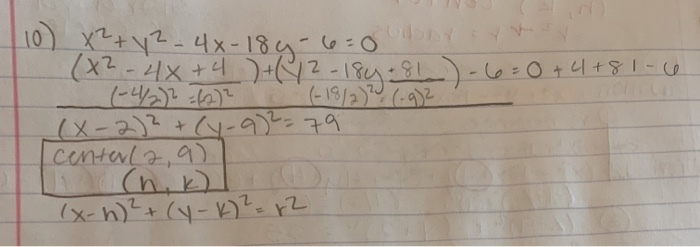 10) x² + y² - 4x - 18y - 6 = 0
(x² - 4x + 4) + (y² - 18y + 81) - 6 = 0 + 4 + 81 - 6
(-4/2)² = (-2)² (-18/2)² = (-9)²
(x-2)² + (y-9)² = 79
center (2, 9)
(h, k)
(x-h)² + (y-k)² = r²